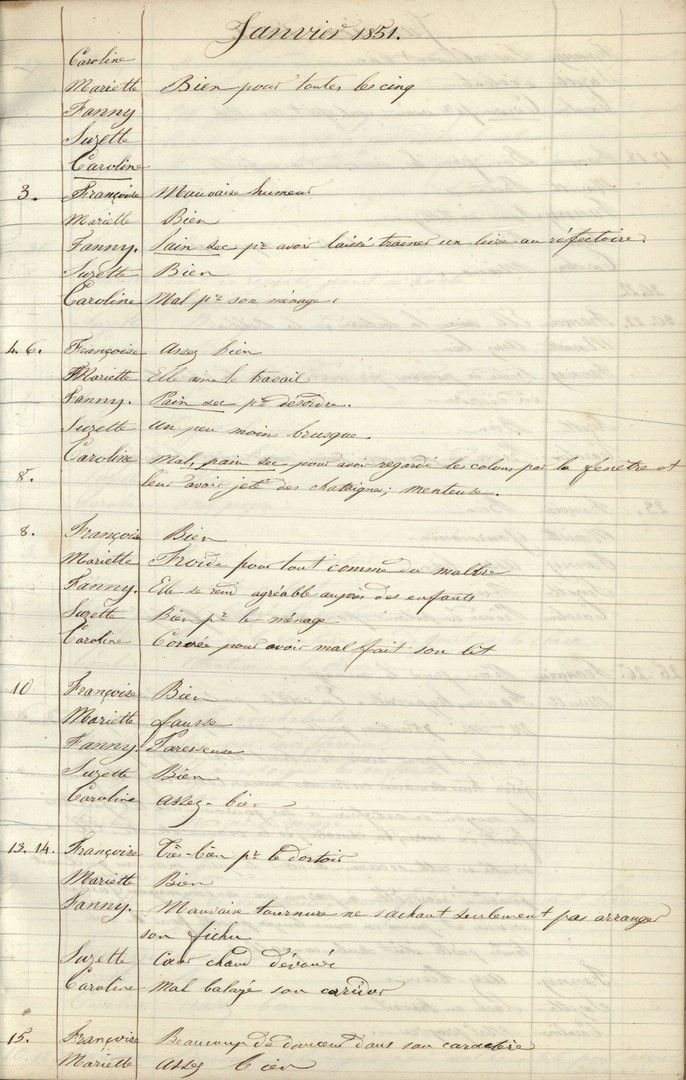 Janvier 1851.
Caroline
Mariette Bien pour toutes les cinq
Fanny
Suzette
Caroline
3. Françoise Mauvaise humeur
Mariette Bien
Fanny. Pain sec pr avoir laissé trainer un livre au réfectoire.
Suzette Bien
Caroline Mal pr son ménage.
4. 6. Françoise Assez bien
Mariette Elle aime le travail
Fanny. Pain sec pr désordre.
Suzette Un peu moins brusque.
Caroline Mal, pain sec pour avoir regardé les colons par la fenêtre et
8. leur avoir jeté des chataignes; menteuse.
8. Françoise Bien
Mariette Froide pour tout comme du marbre
Fanny. Elle se rend agréable auprès des enfants
Suzette Bien pr le ménage
Caroline Corvée pour avoir mal fait son lit
10 Françoise Bien
Mariette fausse
Fanny. Paresseuse
Suzette Bien
Caroline Assez-bien
13. 14. Françoise Très-bien pr le dortoir
Mariette Bien
Fanny. Mauvaise tournure ne sachant seulement pas arranger
son fichu
Suzette Cœur chaud dévoué
Caroline Mal balayé son corridor
15. Françoise Beaucoup de douceur dans son caractère
Mariette Assez bien